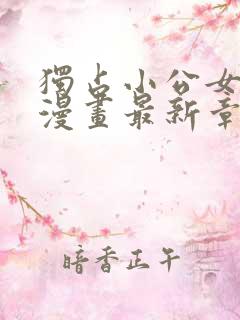 獨占小公女
漫畫最新章
暗香正午